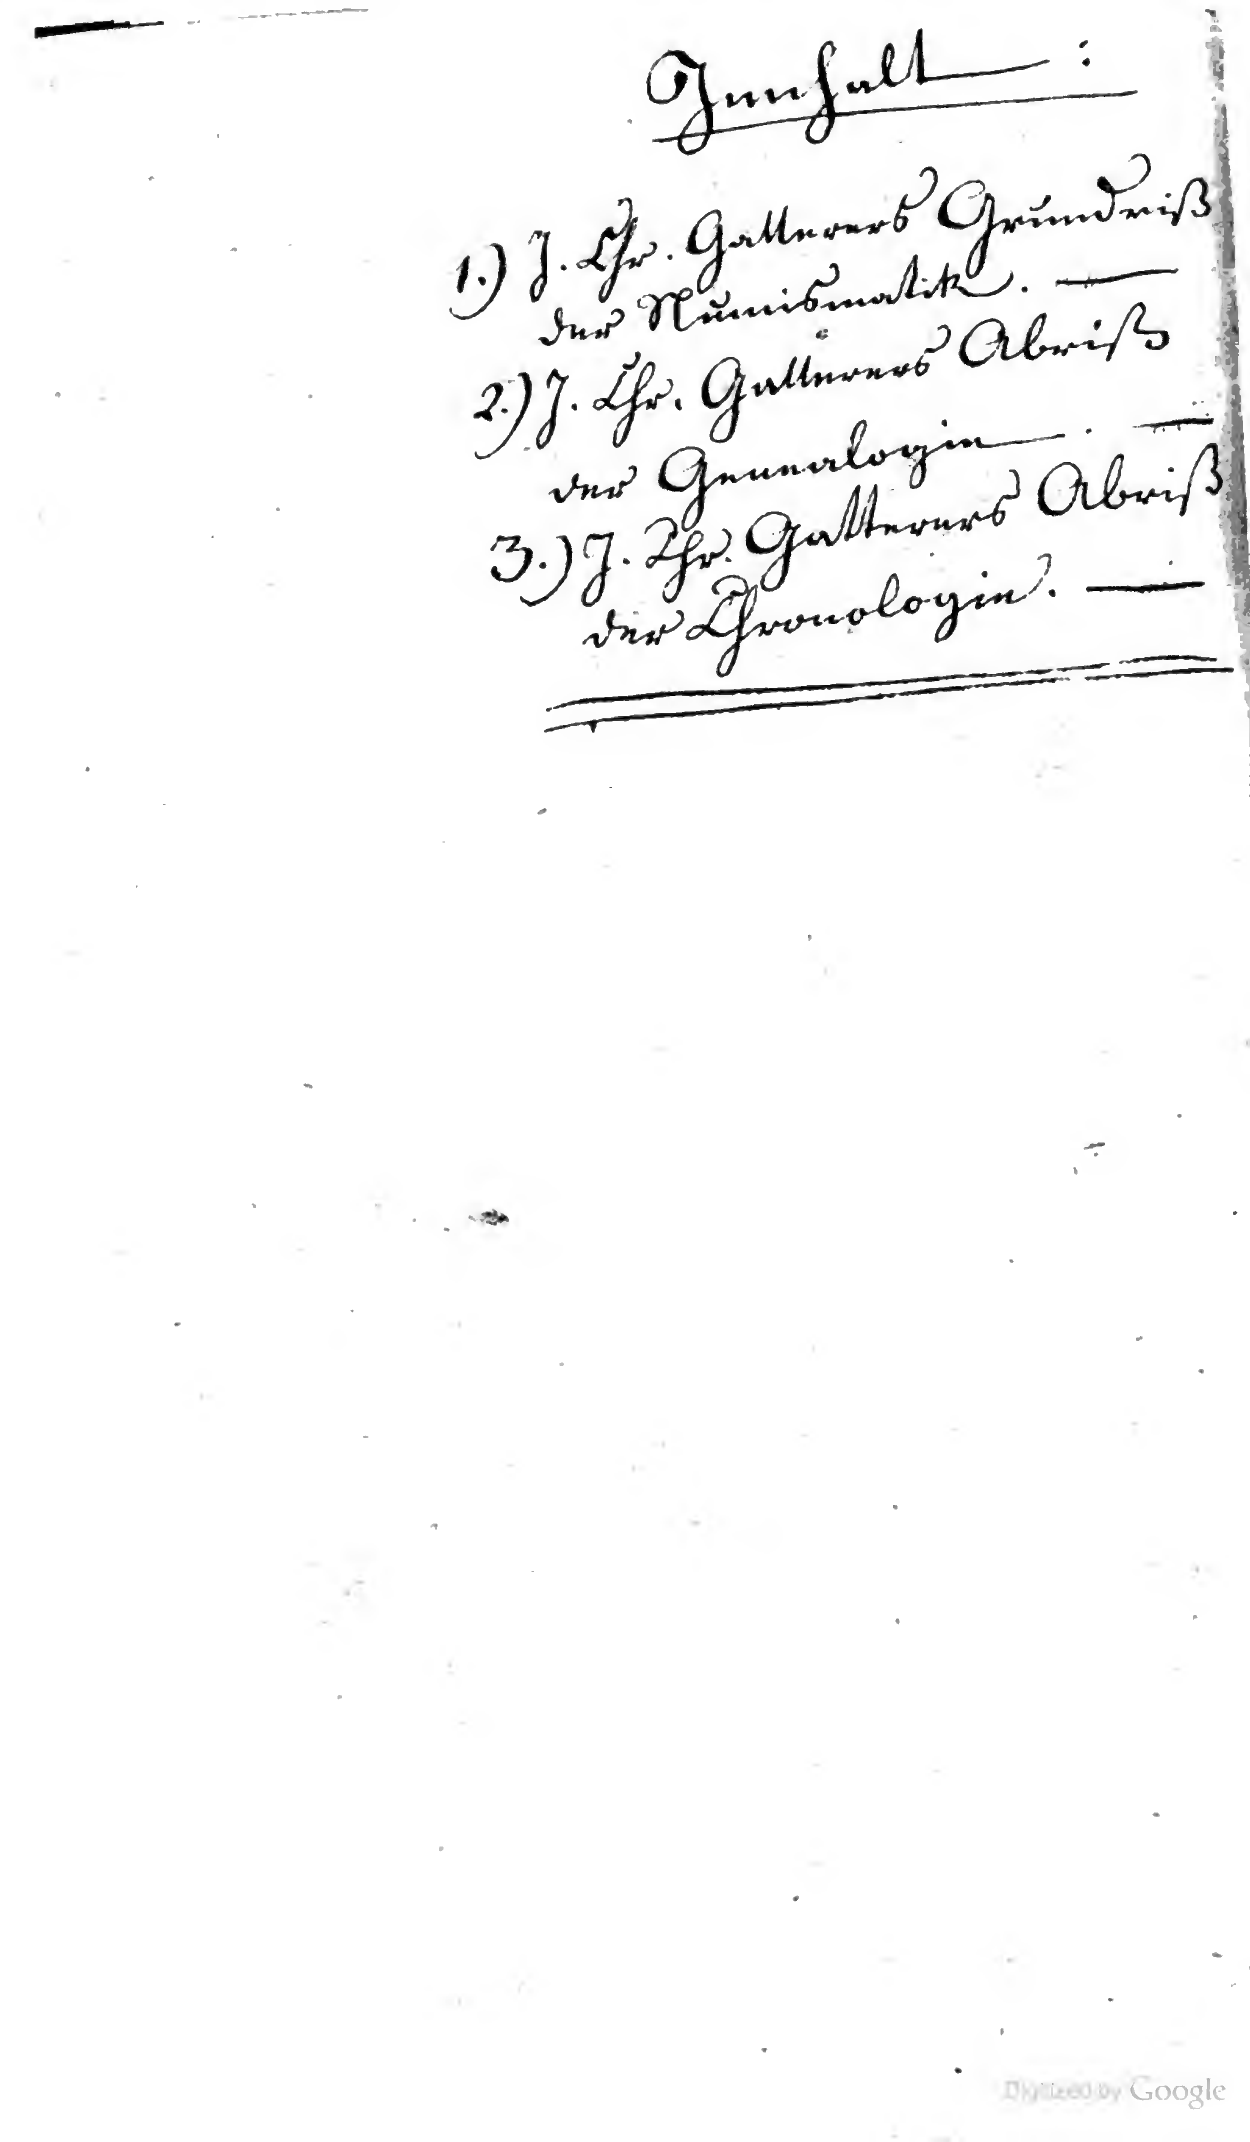 Innhalt :
1.) J. Chr. Gatterers Grundriß
der Numismatik. —
2.) J. Chr. Gatterers Abriß
der Genealogie. —
3.) J. Chr. Gatterers Abriß
der Chronologie. —
Digitized by Google